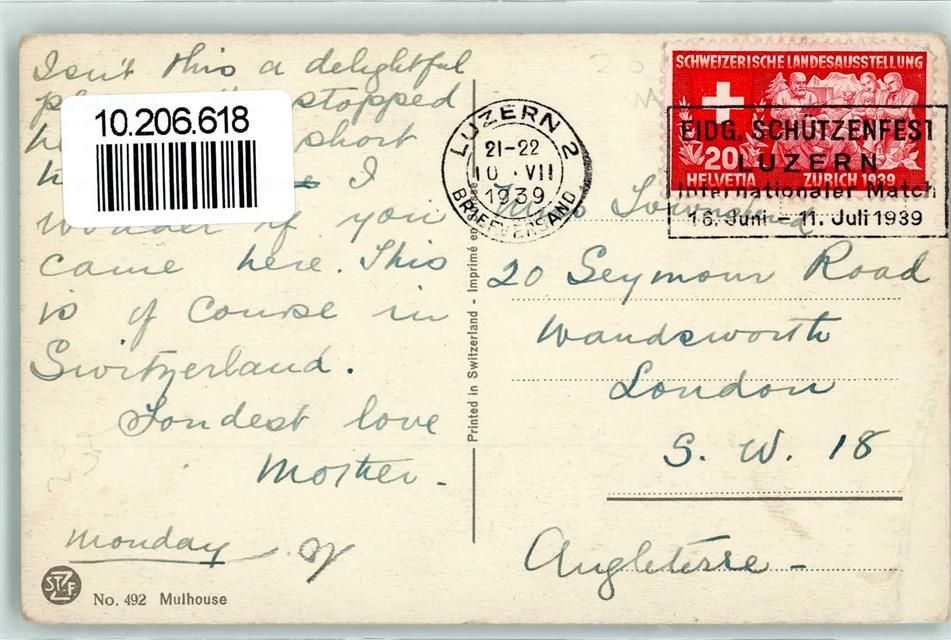 Isn't this a delightful
stopped
10.206.618
short
I
wonder if you
came here. This
is of course in
Switzerland.
Fondest love
Mother.
Monday
STZF
No. 492 Mulhouse
Printed in Switzerland - Imprimé en
LUZERN 2
21-22
10.VII
1939
BRIEFVERSAND
SCHWEIZERISCHE LANDESAUSSTELLUNG
20
HELVETIA ZÜRICH 1939
EIDG. SCHÜTZENFEST
LUZERN
Internationaler Match
16. Juni - 11. Juli 1939
Miss
20 Seymour Road
Wandsworth
London
S. W. 18
Angleterre -